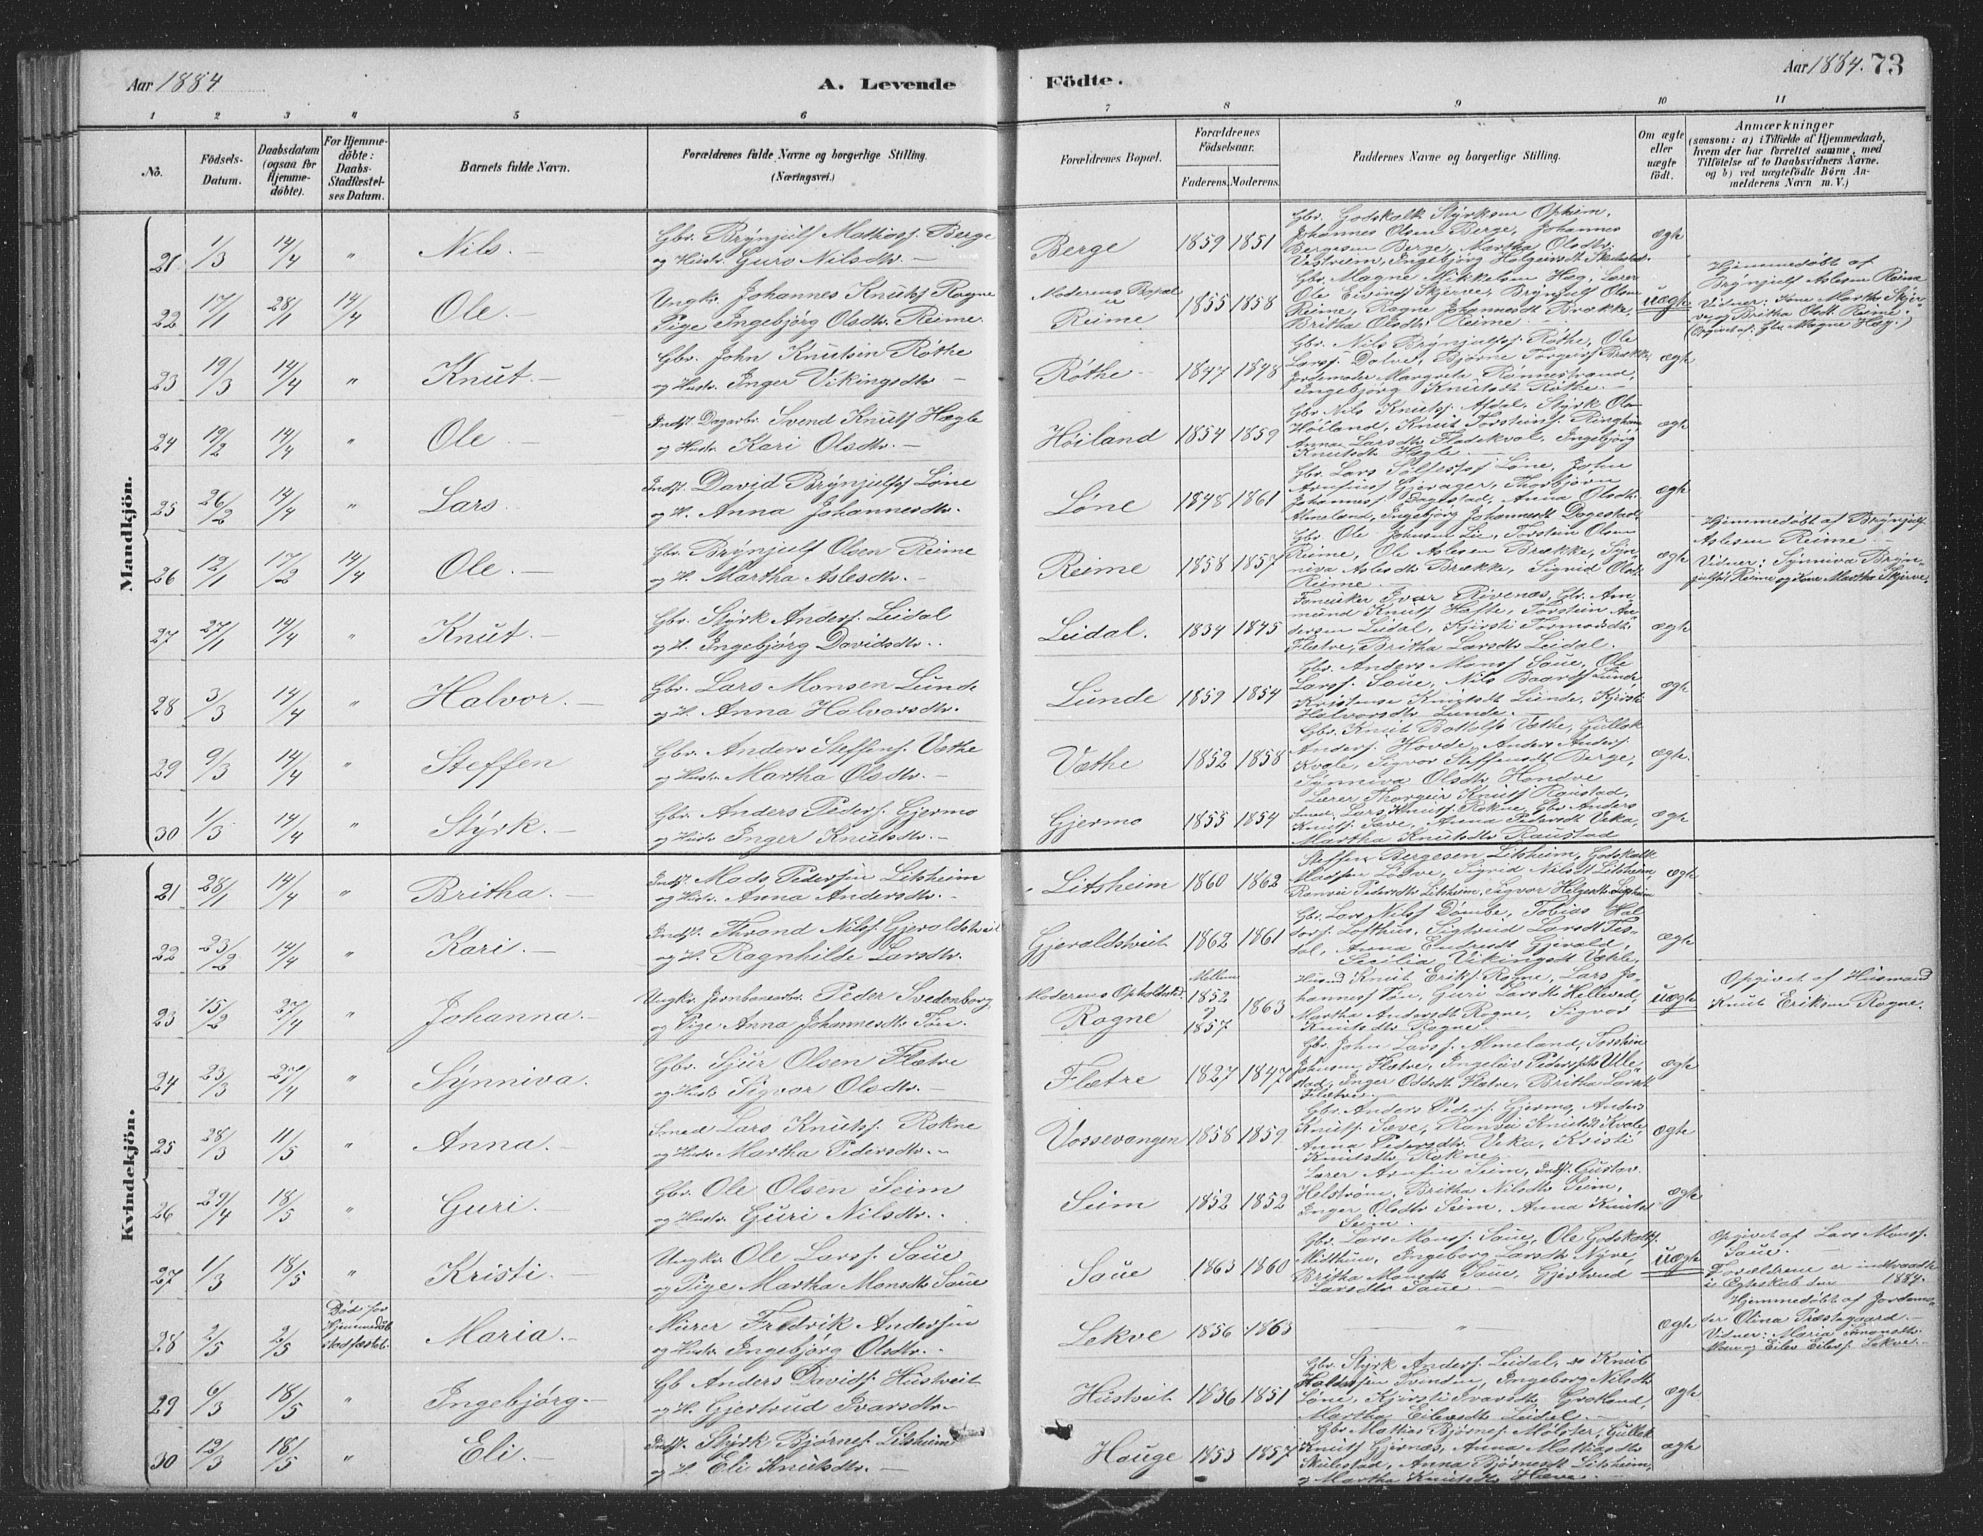 Aar 1884
A. Levende
Födte.
Aar 1884. 73
1 2 3 4 5 6 7 8 9 10 11
No.
Födsels-
Datum.
Daabsdatum
(ogsaa for
Hjemme-
döbte).
For Hjemme-
döbte:
Daabs-
Stadfæstel-
ses Datum.
Barnets fulde Navn.
Forældrenes fulde Navne og borgerlige Stilling.
(Næringsvei.)
Forældrenes Bopæl.
Forældrenes
Födselsaar.
Faderens. Moderens.
Faddernes Navne og borgerlige Stilling.
Om ægte
eller
uægte
födt.
Anmærkninger
(saasom: a) i Tilfælde af Hjemmedaab,
hvem der har forrettet samme, med
Tilföielse af to Daabsvidners Navne.
og b) ved uægtefödte Börn An-
melderens Navn m. V.)
Mandkjön.
21 1/3 14/4 " Nils. —
Gbr. Brynjulf Mathiass. Berge
og Hustr. Guro Nilsdtr. —
Berge 1859 1851
Gbr. Godskalk Styrksen Opheim,
Johannes Olsen Berge, Johannes
Bergesen Berge, Martha Olsdtr.
ægte
22 17/1 28/1 14/4 Ole. —
Ungkr. Johannes Knuts. Rogne
Pige Ingebjörg Olsdtr. Reime.
Moderens Bopæl
er
Reime 1855 1858
Gbr. Magne Mikkelsen Hæg, Lærer
Ole Eivinds. Skjerve, Brynjulf Olsen
Reime, Ragne Johannesdt. Brække,
Britha Olsdtr. Reime
uægte
Hjemmedöbt af
Brynjulf Aslesen Reime
Vidner: Kone Martha Skjer-
ve og Britha Olsdt. Reime.
(Opgivet af Gbr. Magne Hæg.)
23 19/3 14/4 " Knut. —
Gbr. John Knutsen Röthe
og Hustr. Inger Vikingsdtr. —
Röthe — 1847 1848
Gbr. Nils Brynjulfs. Röthe, Ole
Larss. Dolve, Björne Torgeirs. Brække,
Jordemoder Margrete Rönnestrand,
Ingebjörg Knutsdt. Röthe. —
ægte
24 19/2 14/4 " Ole. —
Indst. Dagarb. Svend Knuts. Hægle
og Hustr. Kari Olsdtr. —
Höiland 1854 1859
Gbr. Nils Knuts. Afdal, Styrk Ols.
Höiland, Knut Torsteins. Ringheim
Anna Larsdt. Flatekval, Ingebjörg
Knutsdt. Hægle
ægte
25 26/2 14/4 " Lars.
Indst. David Brynjulfs. Löne
og H. Anna Johannesdtr.
Löne 1848 1861
Gbr. Lars Sjöfers. Löne, John
Arnfins. Gjerager, Thorbjörn
Johannes. Dagestad, Anna Olsdt.
Almeland, Ingebjörg Johannesdt. Dagestad.
ægte
26 12/1 17/2 14/4 Ole. —
Gbr. Brynjulf Olsen Reime
og H. Martha Aslesdtr. —
Reime 1858 1857
Gbr. Ole Johnsen Lie, Torstein Olsen
Reime, Ole Aslesen Brække, Syn-
niva Aslesdt. Brække, Sigrid Olsd.
Reime —
ægte
Hjemmedöbt af Brynjulf
Aslesen Reime —
Vidner: Synniva Bryn-
julfsd. Reime og Kone Martha Skjerve
27 27/1 14/4 " Knut. —
Gbr. Styrk Anders. Leidal
og H. Ingebjörg Davidsdtr..
Leidal. 1834 1845
Ivar Rivenæs, Gbr. Am-
mund Knuts. Hefte, Torstein An-
dersen Leidal, Kjersti Tormodsdt.
Flætre, Britha Larsdtr. Leidal.
ægte
28 3/3 14/4 " Halvor. —
Gbr. Lars Monsen Lunde
og H. Anna Halvorsdtr.
Lunde 1859 1854
Gbr. Anders Monss. Saue, Ole
Larss. Saue, Nils Baards. Lunde,
Kristense Knutsdt. Lunde, Kjersti
Halvorsdtr. Lunde.
ægte
29 9/3 14/4 " Steffen
Gbr. Anders Steffens. Væthe
og Hustr. Martha Olsdtr. —
Væthe 1852 1858
Gbr. Knut Botolfs. Væthe, Gullak
Anders. Hovde, Anders Anders.
Kvale, Sigvor Steffensdt. Berge,
Synniva Olsdtr. Handve
ægte
30 1/3 14/4 " Styrk. —
Gbr. Anders Peders. Gjermo
og Hustr. Inger Knutsdtr. —
Gjermo 1855 1854
Lærer Thorgeir Knuts. Raustad,
Smed Lars Knuts. Rokne, Gbr. Anders
Knuts. Sæve, Anna Pedersdt. Veka,
Martha Knutsdtr. Raustad
ægte
Kvindekjön.
21 28/1 14/4 " Britha. —
Indst. Mads Pedersen Litsheim
og Hustr. Anna Andersdtr. —
Litsheim 1860 1862
Steffen Bergesen Litsheim, Godskalk
Madsen Lödve, Sigrid Nilsdt. Litsheim,
Ranvei Pedersdt. Litsheim, Sigvor Helgesdt. Litsheim
ægte
22 23/2 14/4 " Kari. —
Indst. Thrond Nilss. Gjeraldstveit
og H. Ragnhilde Larsdtr.
Gjeraldstveit 1862 1861
Gbr. Lars Nilss. Dömbe, Tobias Hal-
vors. Lofthus, Sigtrud Larsdt. Tes-
dal, Anna Endresdt. Gjerald,
Secilia Vikingsdt. Vækle,
ægte
23 15/2 27/4 " Johanna. —
Ungkr. Jernbanearbr. Peder Svedenborg
og Pige Anna Johannesdtr. Tön.
Moderens Opholdssted
Rogne
Mellem
1852
&
1857
1863
Husmd. Knut Eriks. Rogne, Lars Jo-
hannes. Tön, Guri Larsdt. Helleved
Martha Andersdt. Rogne, Sigvor
Knutsdtr. Rogne
uægte
Opgivet af Husmand
Knut Eriksen Rogne.
24 23/3 27/4 " Synniva.
Gbr. Sjur Olsen Flætre
og Hustr. Sigvor Olsdtr. —
Flætre 1827 1847
Gbr. John Larss. Almeland, Torstein
Johnsen Flætre, Ingeleiv Pedersdtr. Ulle-
stad, Inger Oddsdt. Flætre, Britha Larsdt.
Flætre
ægte
25 28/3 11/5 " Anna.
Smed Lars Knuts. Rokne
og Hustr. Martha Pedersdtr. —
Vossevangen 1858 1859
Gbr. Anders Peders. Gjermo, Anders
Knuts. Sæve, Ranvei Knutsdt. Kvale,
Anna Pedersdtr. Veka, Kristi
Knutsdtr. Rokne.
ægte
26 29/4 18/5 " Guri.
Gbr. Ole Olsen Seim
og Hustr. Guri Nilsdtr. .
Seim 1852 1852
Lærer Arnfin Seim, Indst. Gustav
Helström, Britha Nilsdtr. Seim,
Inger Olsdtr. Seim, Anna Knutsdt.
Seim
ægte
27 1/3 18/5 " Kristi. —
Ungkr. Ole Larss. Saue
og Pige Martha Monsdtr. Saue
Saue 1863 1860
Gbr. Lars Monss. Saue, Ole Godskalks.
Midthun, Ingeborg Larsdt. Nyre,
Britha Monsdtr. Saue, Gjertrud
Larsdtr. Saue. —
uægte
Opgivet af Lars Monss.
Saue. —
Forældrene er indtraadt
i Egteskab den 1884.
28 2/5 2/5
Död för
Hjemmedaab.
stadfæstet.
Maria. —
Murer Fredrik Andersen
og Hustr. Ingebjörg Olsdtr. .
Lekve 1856 1863
— " —
ægte
Hjemmedöbt af Jordemo-
der Olina Præstegaard. —
Vidner: Maria Simonsdtr.
og Eilev Eilevs. Lekve. —
29 6/3 18/5 " Ingebjörg. —
Gb. Anders Davids. Hustveit
og H. Gjertrud Ivarsdtr. —
Hustveit 1836 1851
Gbr. Styrk Anders. Leidal, Knut
Tvinden, Ingeborg Nilsdt.
Löne, Kjersti Ivarsdt. Grotland,
Martha Eilevsdt. Leidal. —
ægte
30 12/3 18/5 " Eli. —
Indst. Styrk Björnes. Litsheim
og H. Eli Knutsdtr. —
Hauge 1853 1857
Gbr. Matias Björnes. Mölster, Gullak
Knuts. Gjernæs, Anna Mathiasdtr.
Skulestad, Anna Björnesdt. Litsheim,
og Martha Knutsdt. Hæve. —
ægte